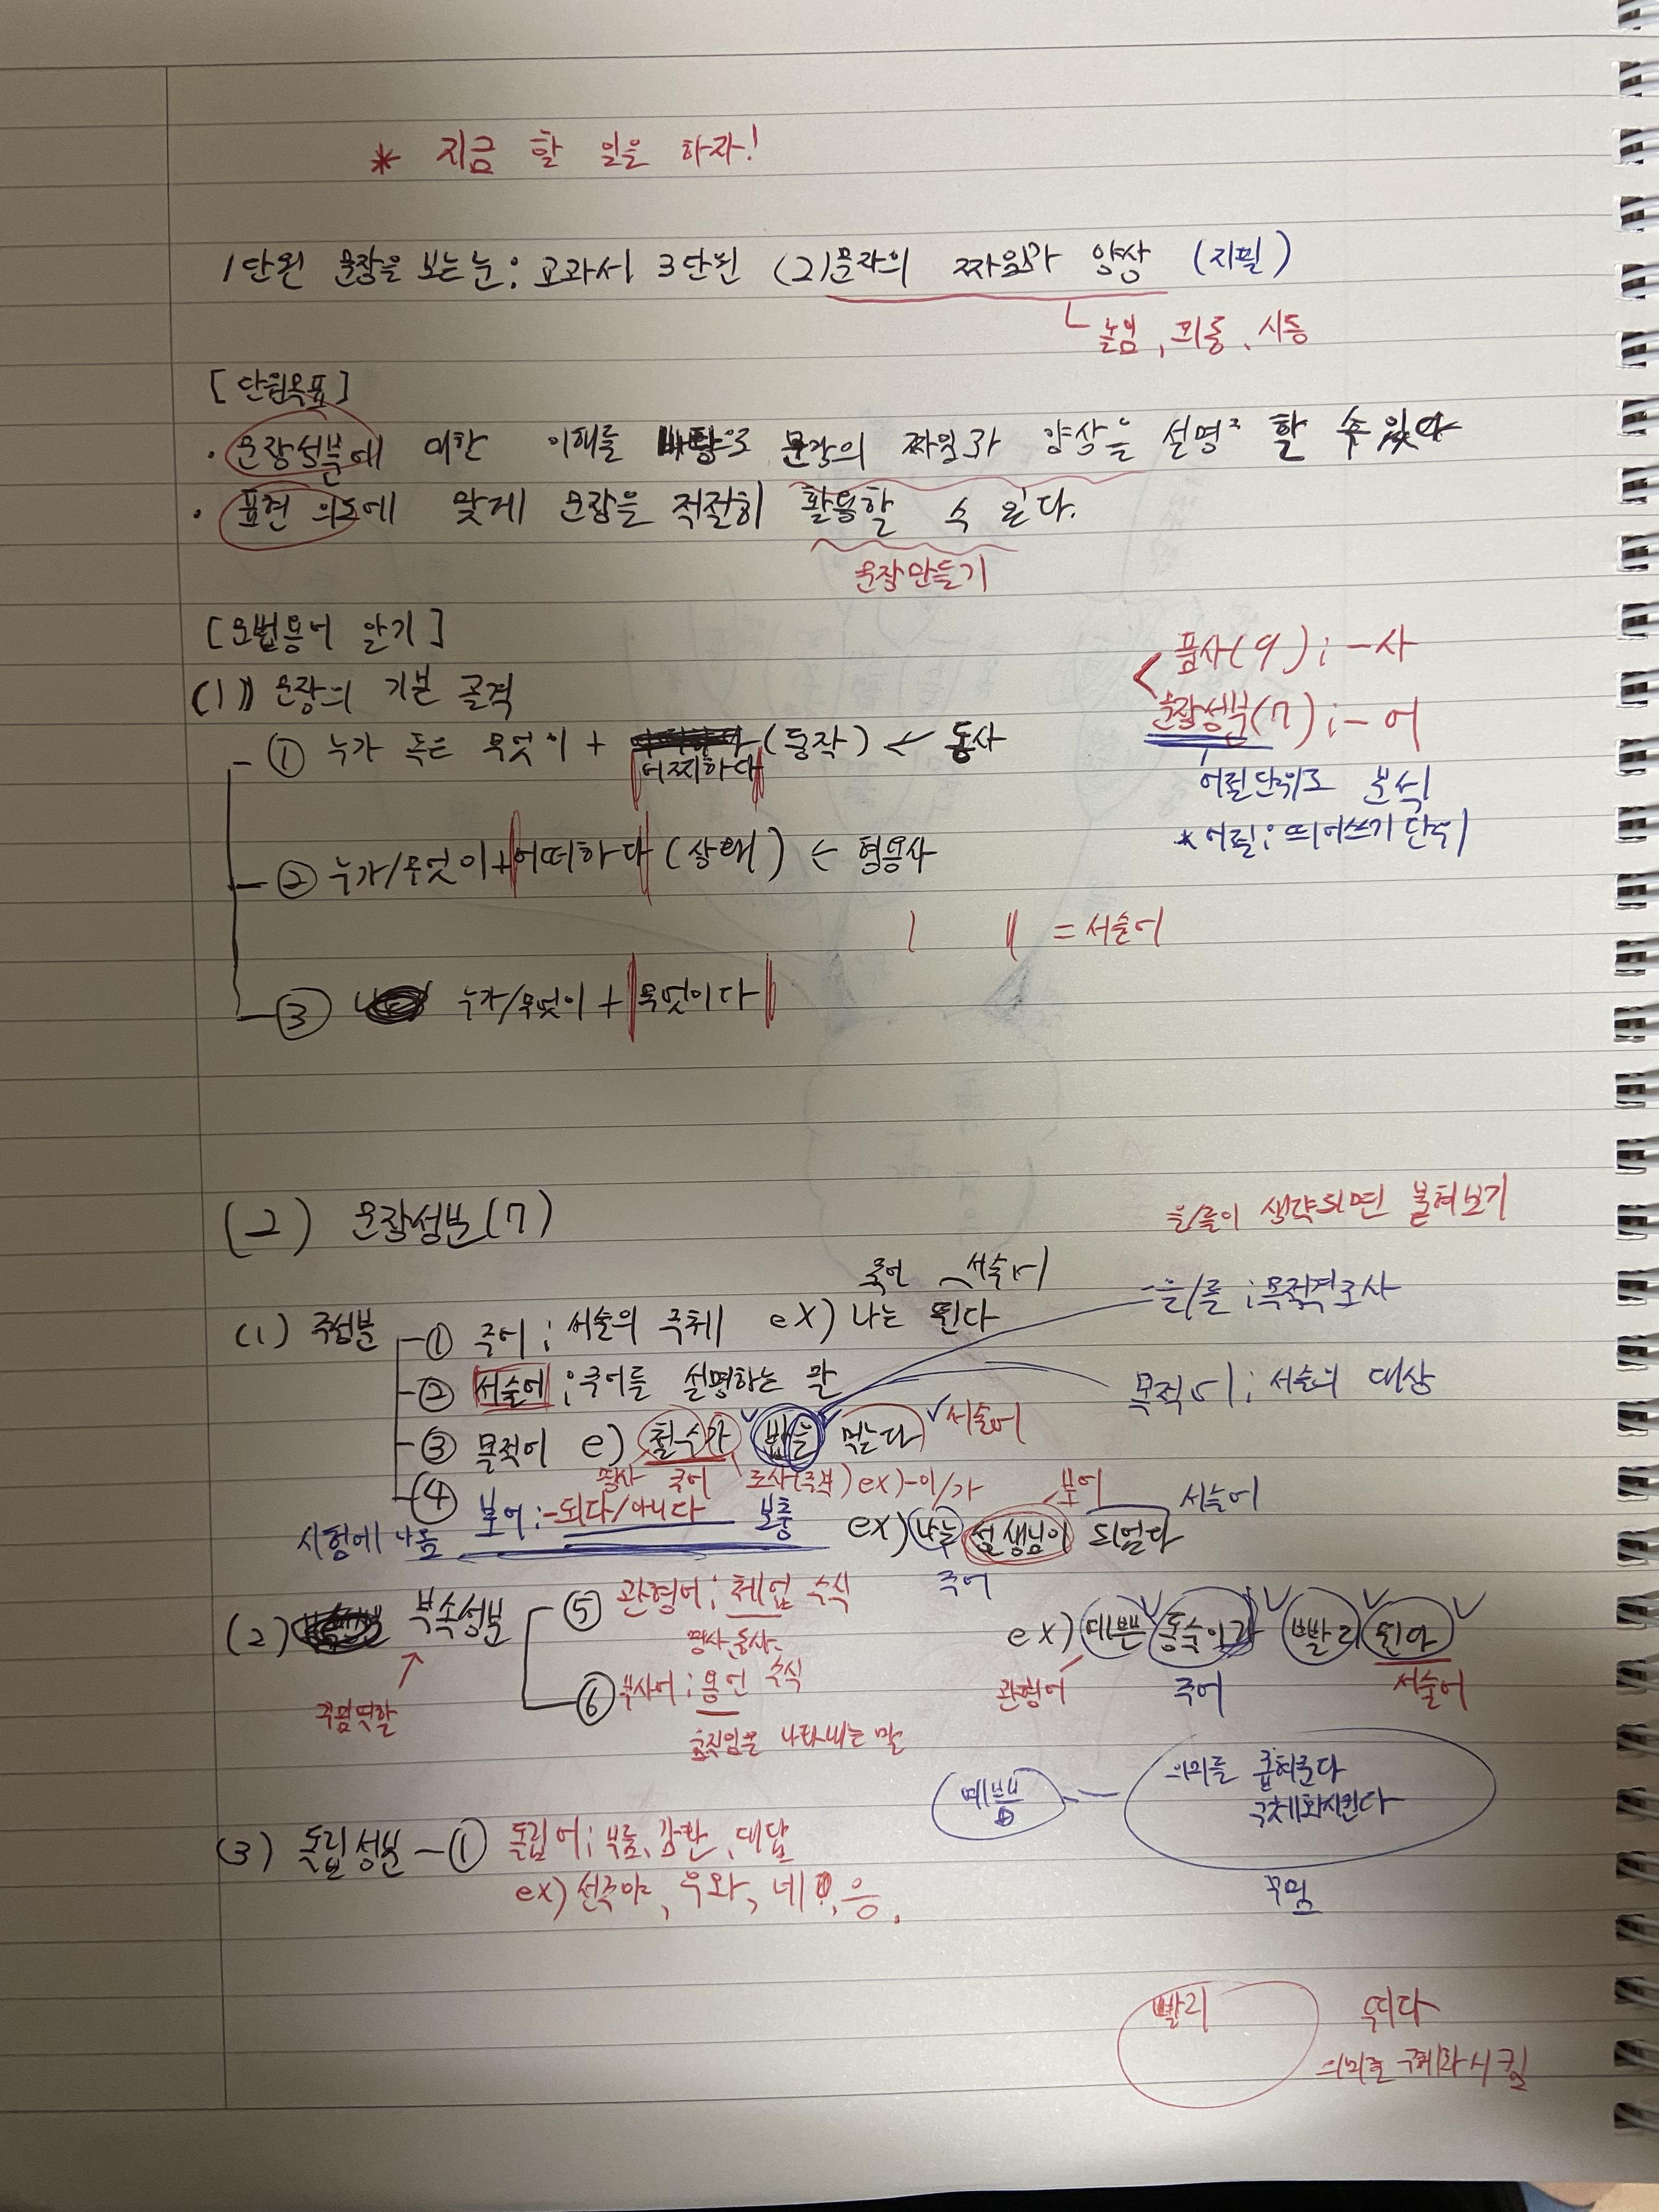 * 지금 할 일을 하자!
1단원 문장을 보는 눈: 교과서 3단원 (2)문장의 짜임과 양상 (지필)
높임, 피동, 시동
[단원목표]
· 문장성분에 대한 이해를 바탕으로 문장의 짜임과 양상을 설명 할 수 있다
· 표현 의도에 맞게 문장을 적절히 활용할 수 있다.
문장만들기
[문법용어 알기]
품사(9) ; -사
(1) 문장의 기본 골격
문장성분(7) ; -어
① 누가 혹은 무엇이 + (동작) ← 동사
어찌하다
어절단위로 분석
* 어절 ; 띄어쓰기 단위
② 누가/무엇이 + 어떠하다 (상태) ← 형용사
= 서술어
③ 누가/무엇이 + 무엇이다
(2) 문장성분(7)
을/를이 생략되면 붙혀보기
주어 서술어
-을/를 ; 목적격조사
(1) 주성분 ① 주어 ; 서술의 주체 ex) 나는 뛴다
② 서술어 ; 주어를 설명하는 말
목적어 ; 서술의 대상
③ 목적어 e) 철수가 밥을 먹는다 서술어
명사 주어 조사(주부) ex) -이/가
④ 보어 ; -되다/아니다 보충
시험에 나옴
보어 서술어
ex) 나는 선생님이 되었다
주어
(2) 부속성분 ⑤ 관형어 ; 체언 수식
꾸밈역할
ex) 예쁜 동숙이가 빨리 뛴다
관형어 주어 서술어
⑥ 부사어 ; 용언 수식
움직임을 나타내는 말
예쁜 - 의미를 좁혀준다
구체화시킨다
꾸밈
(3) 독립성분 - ① 독립어 ; 부름, 감탄, 대답
ex) 선주야, 우와, 네, 응.
빨리 뛰다
의미를 구체화시킴